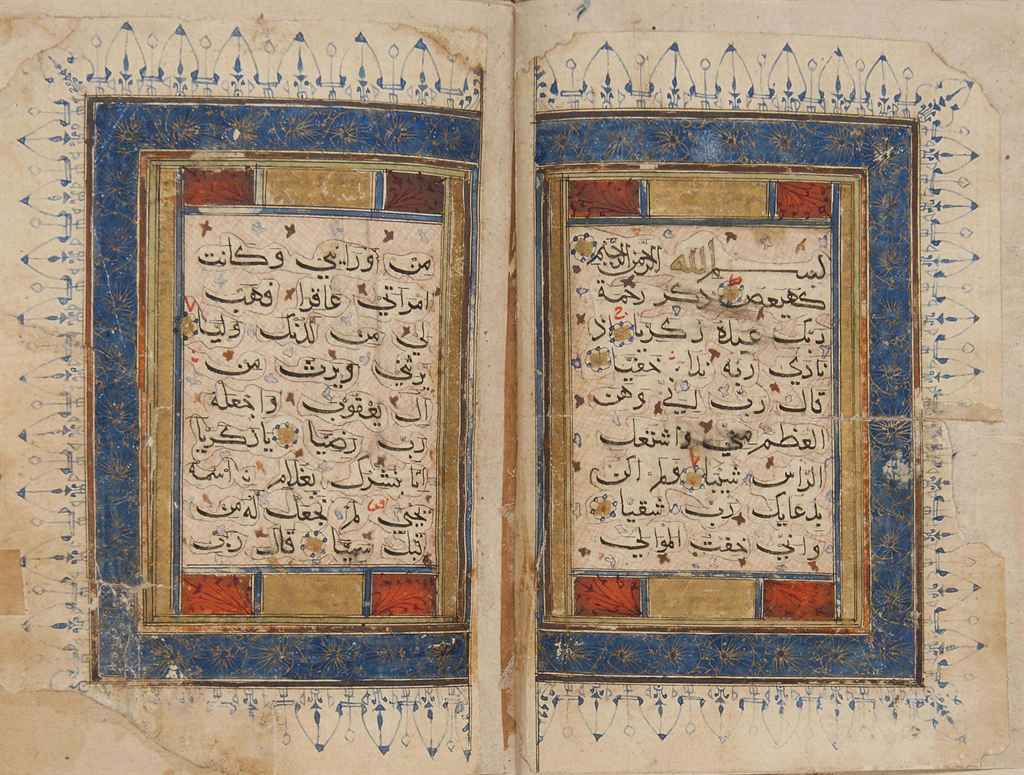 بسم الله الرحمن الرحيم
كهيعص ذكر رحمة
ربك عبده زكريا اذ
نادي ربه نداء خفيا
قال رب اني وهن
العظم مني واشتعل
الراس شيبا ولم اكن
بدعايك رب شقيا
واني خفت الموالي
من ورايي وكانت
امراتي عاقرا فهب
لي من لدنك وليا
يرثني ويرث من
ال يعقوب واجعله
رب رضيا يا زكريا
انا نبشرك بغلام ن اسمه
يحيي لم نجعل له من
قبل سميا قال رب